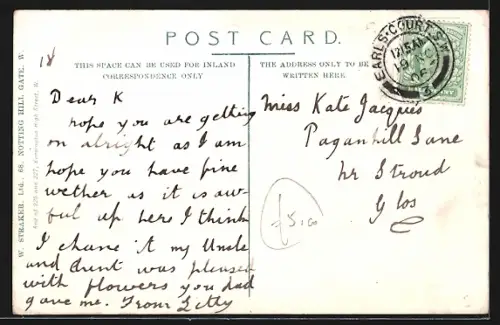 POST CARD.
THIS SPACE CAN BE USED FOR INLAND
CORRESPONDENCE ONLY
THE ADDRESS ONLY TO BE
WRITTEN HERE.
18
EARLS·COURT.S.W
12.15AM
19
06
3
W. STRAKER, Ltd., 68, NOTTING HILL GATE, W.
And at 225 and 227, Kensington High Street, W.
Dear K
hope you are getting
on alright as I am
hope you have fine
wether as it is aw-
ful up here I think
I chane it my Uncle
and Aunt was pleased
with flowers you had
gave me. From Letty
Miss Kate Jacques
Paganhill Lane
Nr Stroud
Glos
£5.00